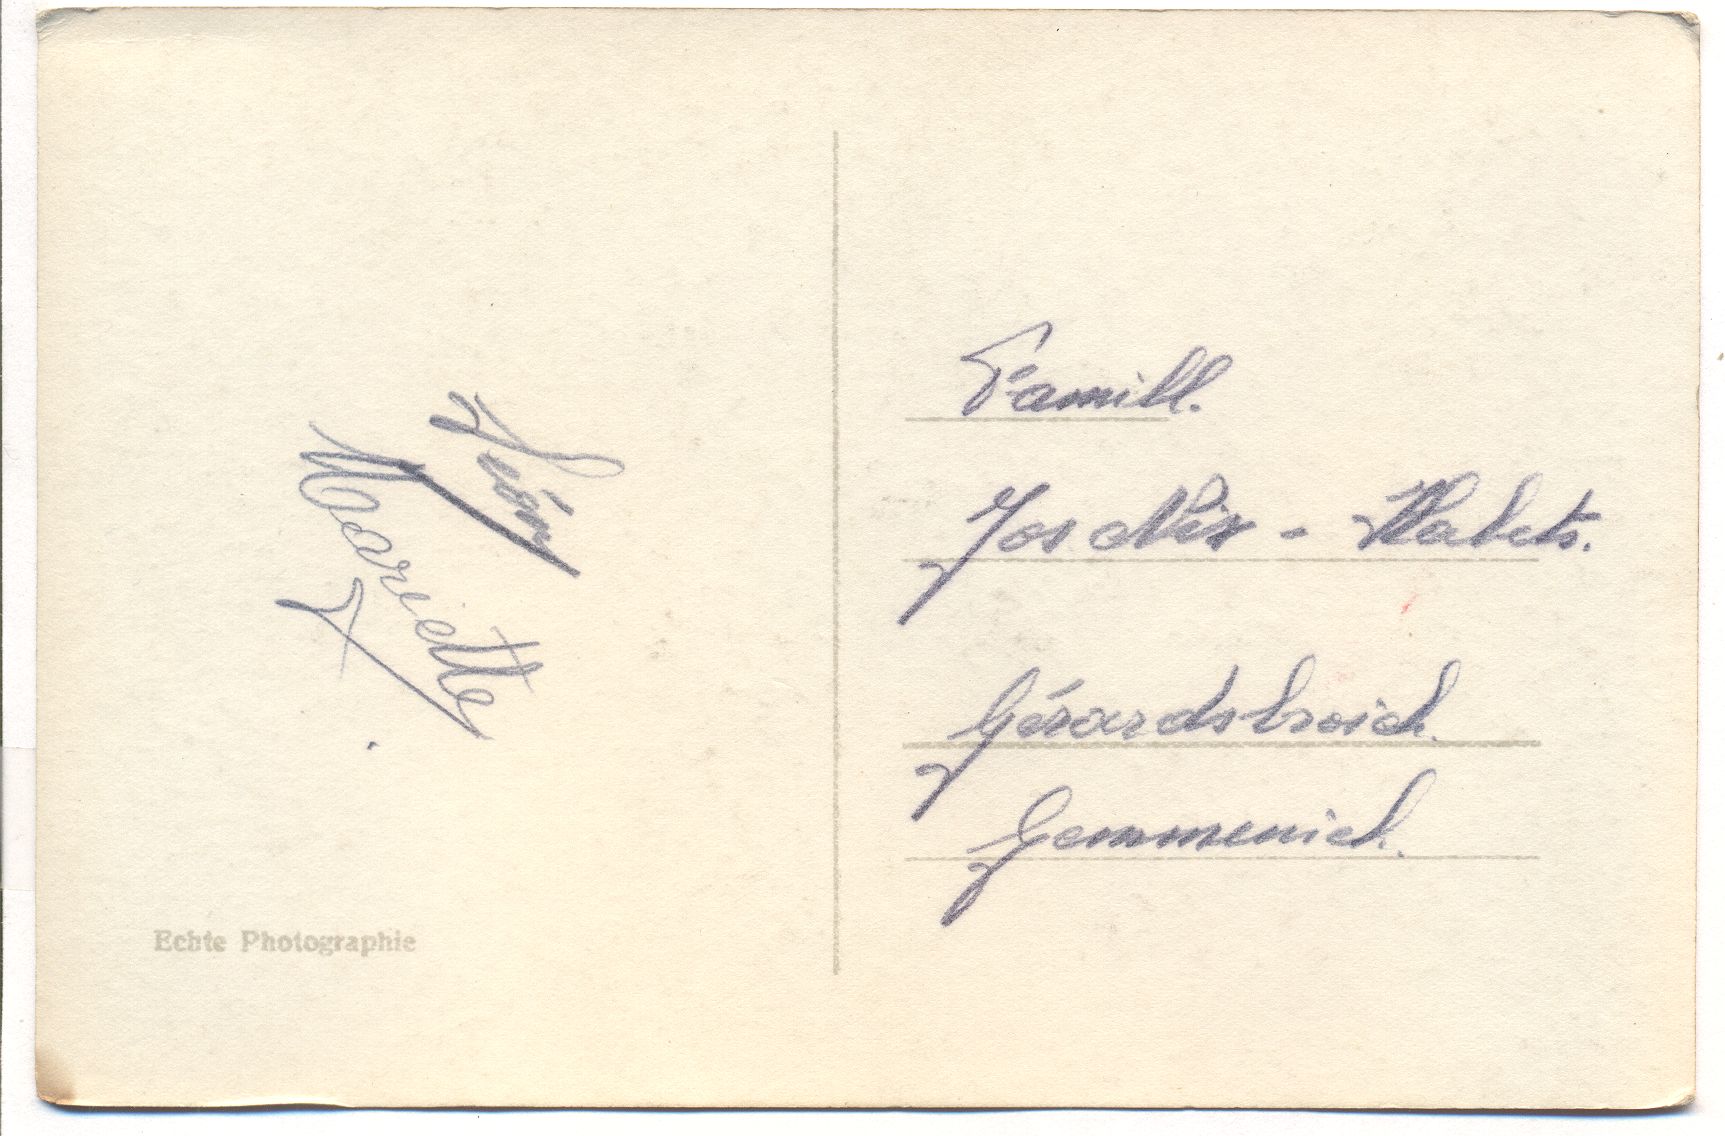 Léóny
Mariette
Echte Photographie
Famill.
Jos Nix - Habets.
Gérardsbroich.
Gemmenich.